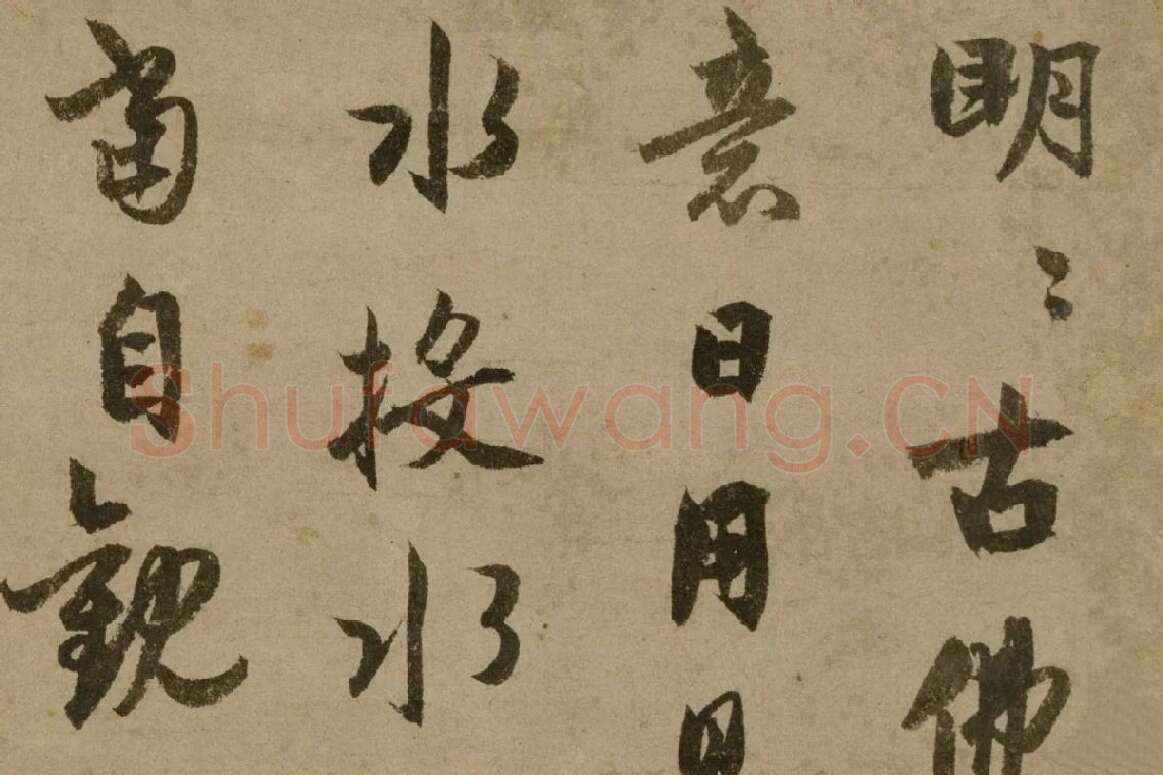 明〻古佛
意日用
水投水
當自觀
Shufawang.CN